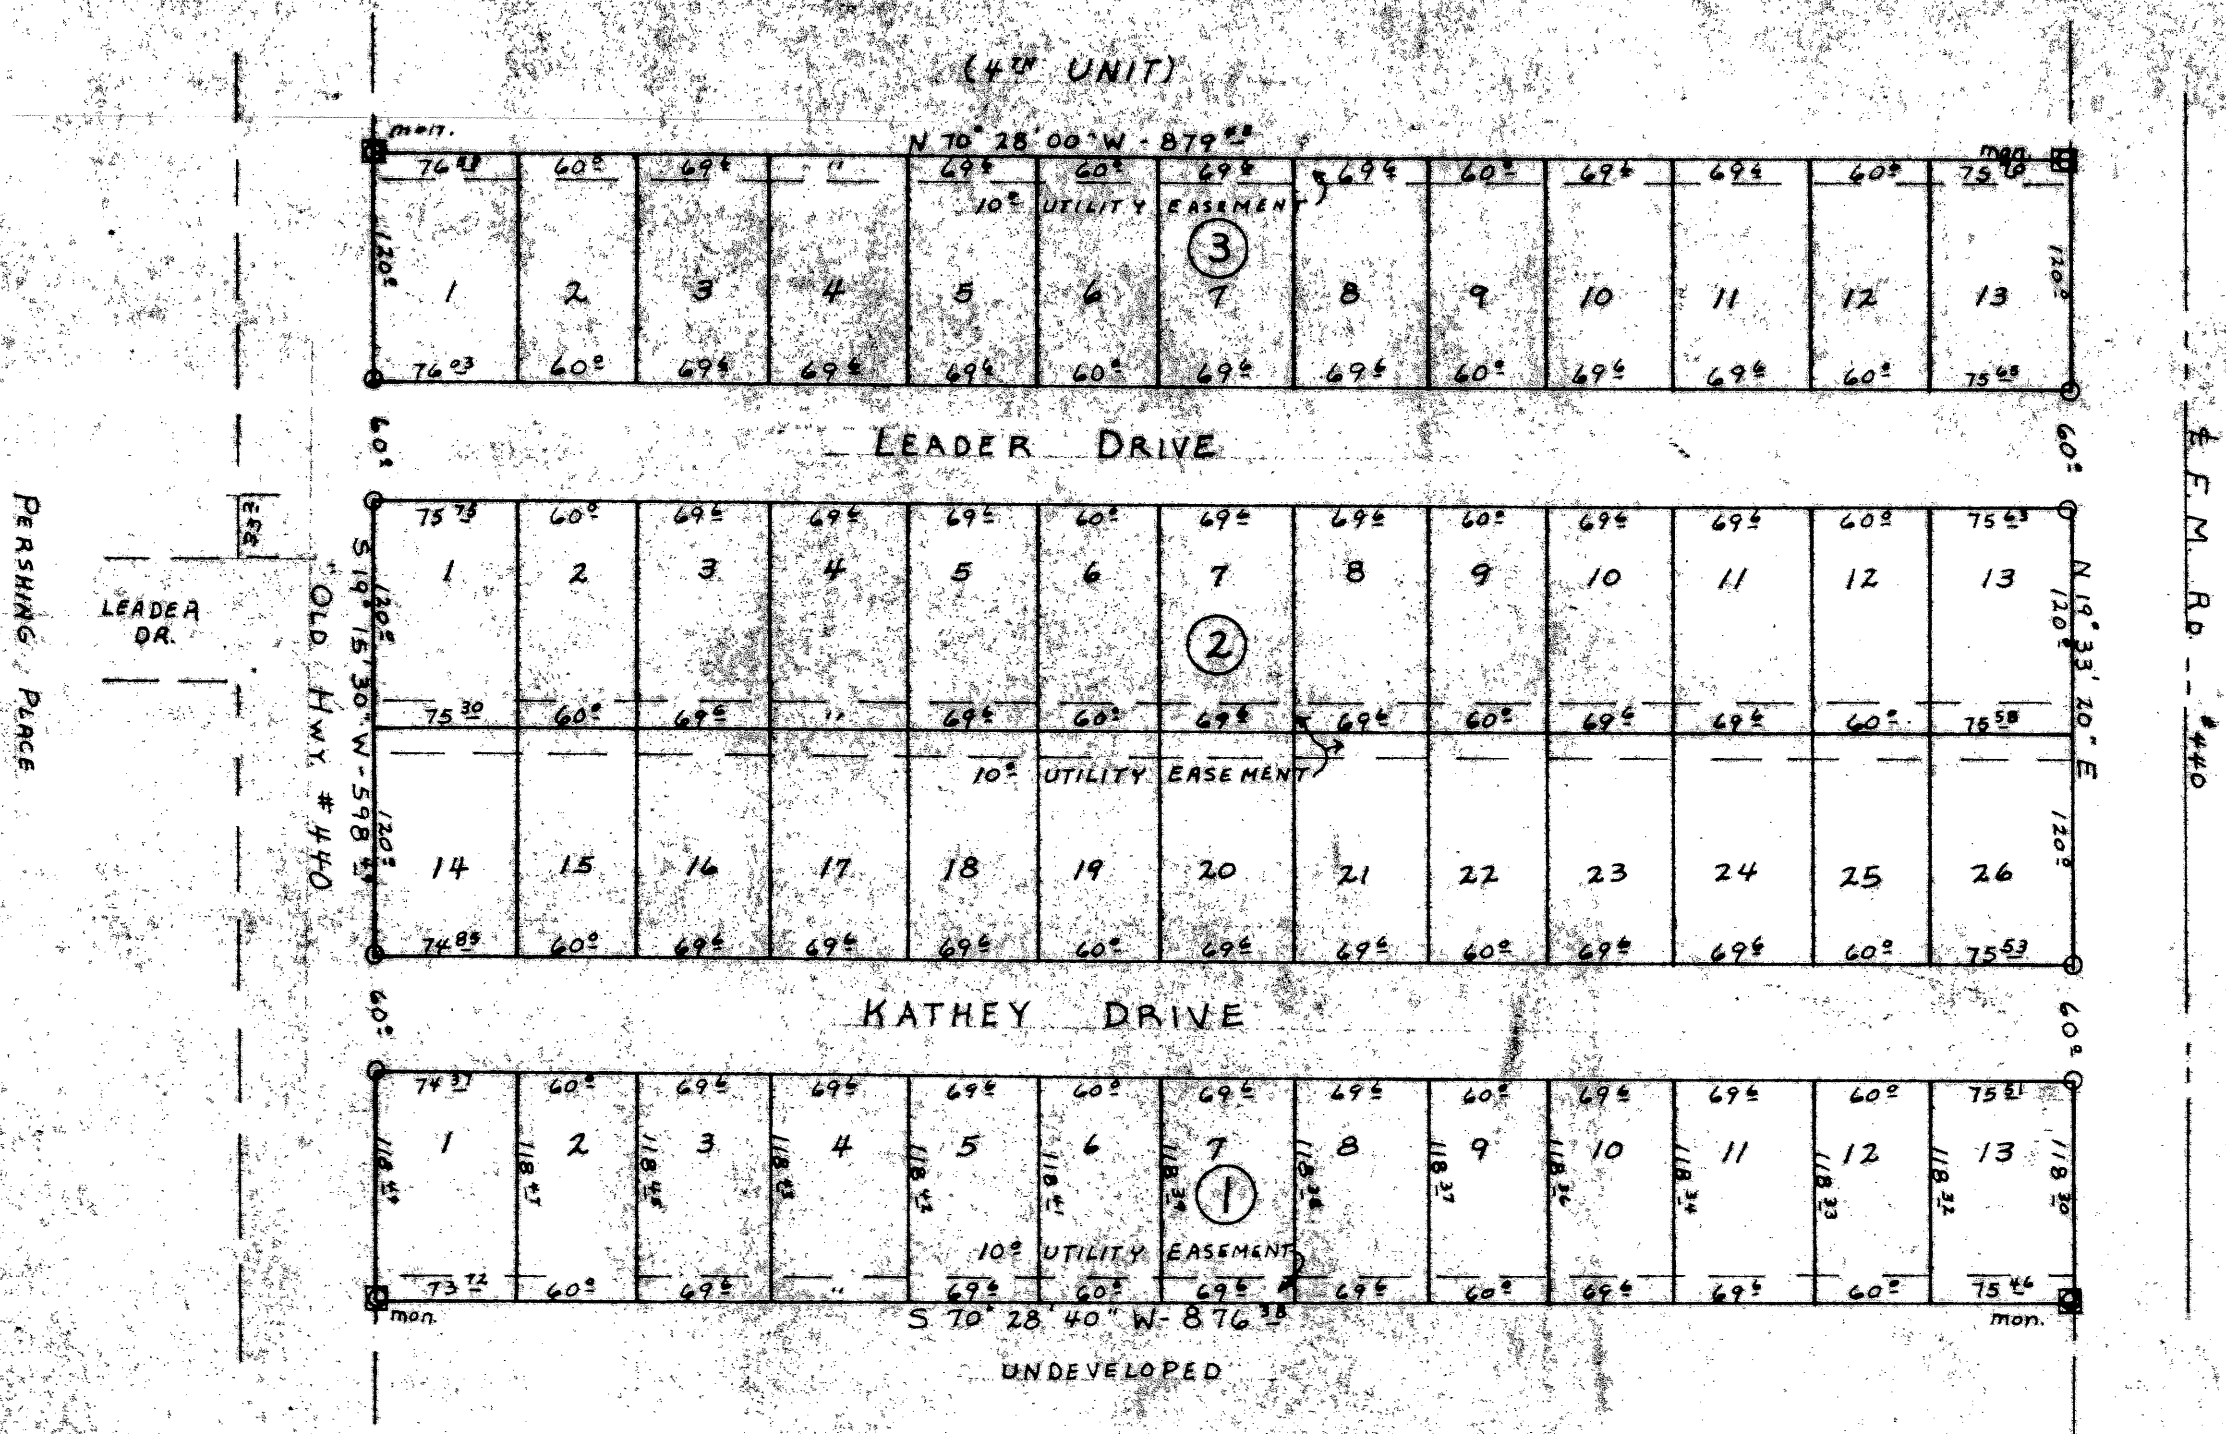 (4TH UNIT)
mon.
N 70° 28' 00" W - 879
mon.
60º 69⁶ " 69⁶ 60º 69⁶ 69⁶ 60º 69⁶ 69⁶ 60º
10º UTILITY EASEMENT
3
120º 120º
1 2 3 4 5 6 7 8 9 10 11 12 13
76 03 60º 69⁶ 69⁶ 69⁶ 60º 69⁶ 69⁶ 60º 69⁶ 69⁶ 60º 75 68
60º LEADER DRIVE 60º
75 75 60º 69⁶ 69⁶ 69⁶ 60º 69⁶ 69⁶ 60º 69⁶ 69⁶ 60º 75 63
1 2 3 4 5 6 7 8 9 10 11 12 13
120º 120º
2
75 30 60º 69⁶ " 69⁶ 60º 69⁶ 69⁶ 60º 69⁶ 69⁶ 60º 75 58
10º UTILITY EASEMENT
120º 120º
14 15 16 17 18 19 20 21 22 23 24 25 26
74 85 60º 69⁶ 69⁶ 69⁶ 60º 69⁶ 69⁶ 60º 69⁶ 69⁶ 60º 75 53
60º KATHEY DRIVE 60º
74 37 60º 69⁶ 69⁶ 69⁶ 60º 69⁶ 69⁶ 60º 69⁶ 69⁶ 60º 75 51
1 2 3 4 5 6 7 8 9 10 11 12 13
118 49 118 47 118 45 118 43 118 42 118 41 118 39 118 38 118 37 118 36 118 34 118 33 118 32 118 30
1
10º UTILITY EASEMENT
73 72 60º 69⁶ " 69⁶ 60º 69⁶ 69⁶ 60º 69⁶ 69⁶ 60º 75 46
mon.
S 70° 28' 40" W - 876 38
mon.
UNDEVELOPED
PERSHING PLACE
LEADER
DR.
"OLD HWY # 440
S 19° 15' 30" W - 598 49
N 19° 33' 20" E
℄ F. M. RD. #440